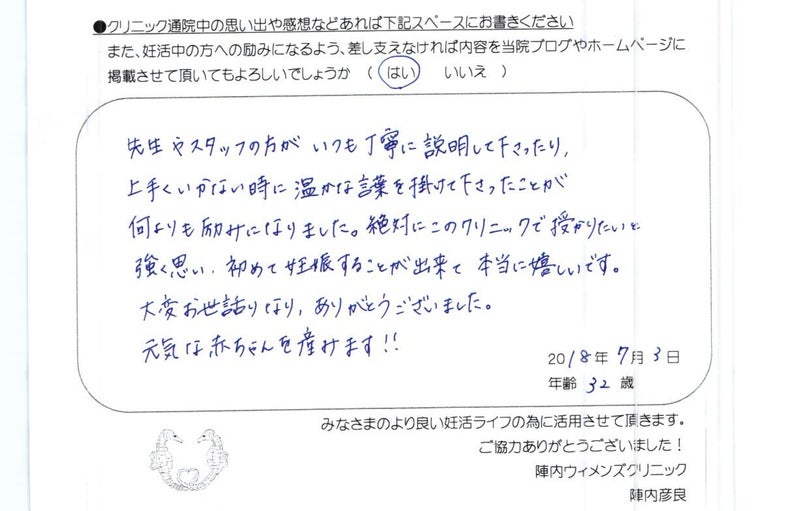 ●クリニック通院中の思い出や感想などあれば下記スペースにお書きください
また、妊活中の方への励みになるよう、差し支えなければ内容を当院ブログやホームページに
掲載させて頂いてもよろしいでしょうか （ はい いいえ ）
先生やスタッフの方が いつも丁寧に説明して下さったり,
上手くいかない時に温かな言葉を掛けて下さったことが
何よりも励みになりました。絶対にこのクリニックで授かりたいと
強く思い、初めて妊娠することが出来て 本当に嬉しいです。
大変お世話りなり,ありがとうございました。
元気な赤ちゃんを産みます!!
2018年7月3日
年齢 32 歳
みなさまのより良い妊活ライフの為に活用させて頂きます。
ご協力ありがとうございました！
陣内ウィメンズクリニック
陣内彦良